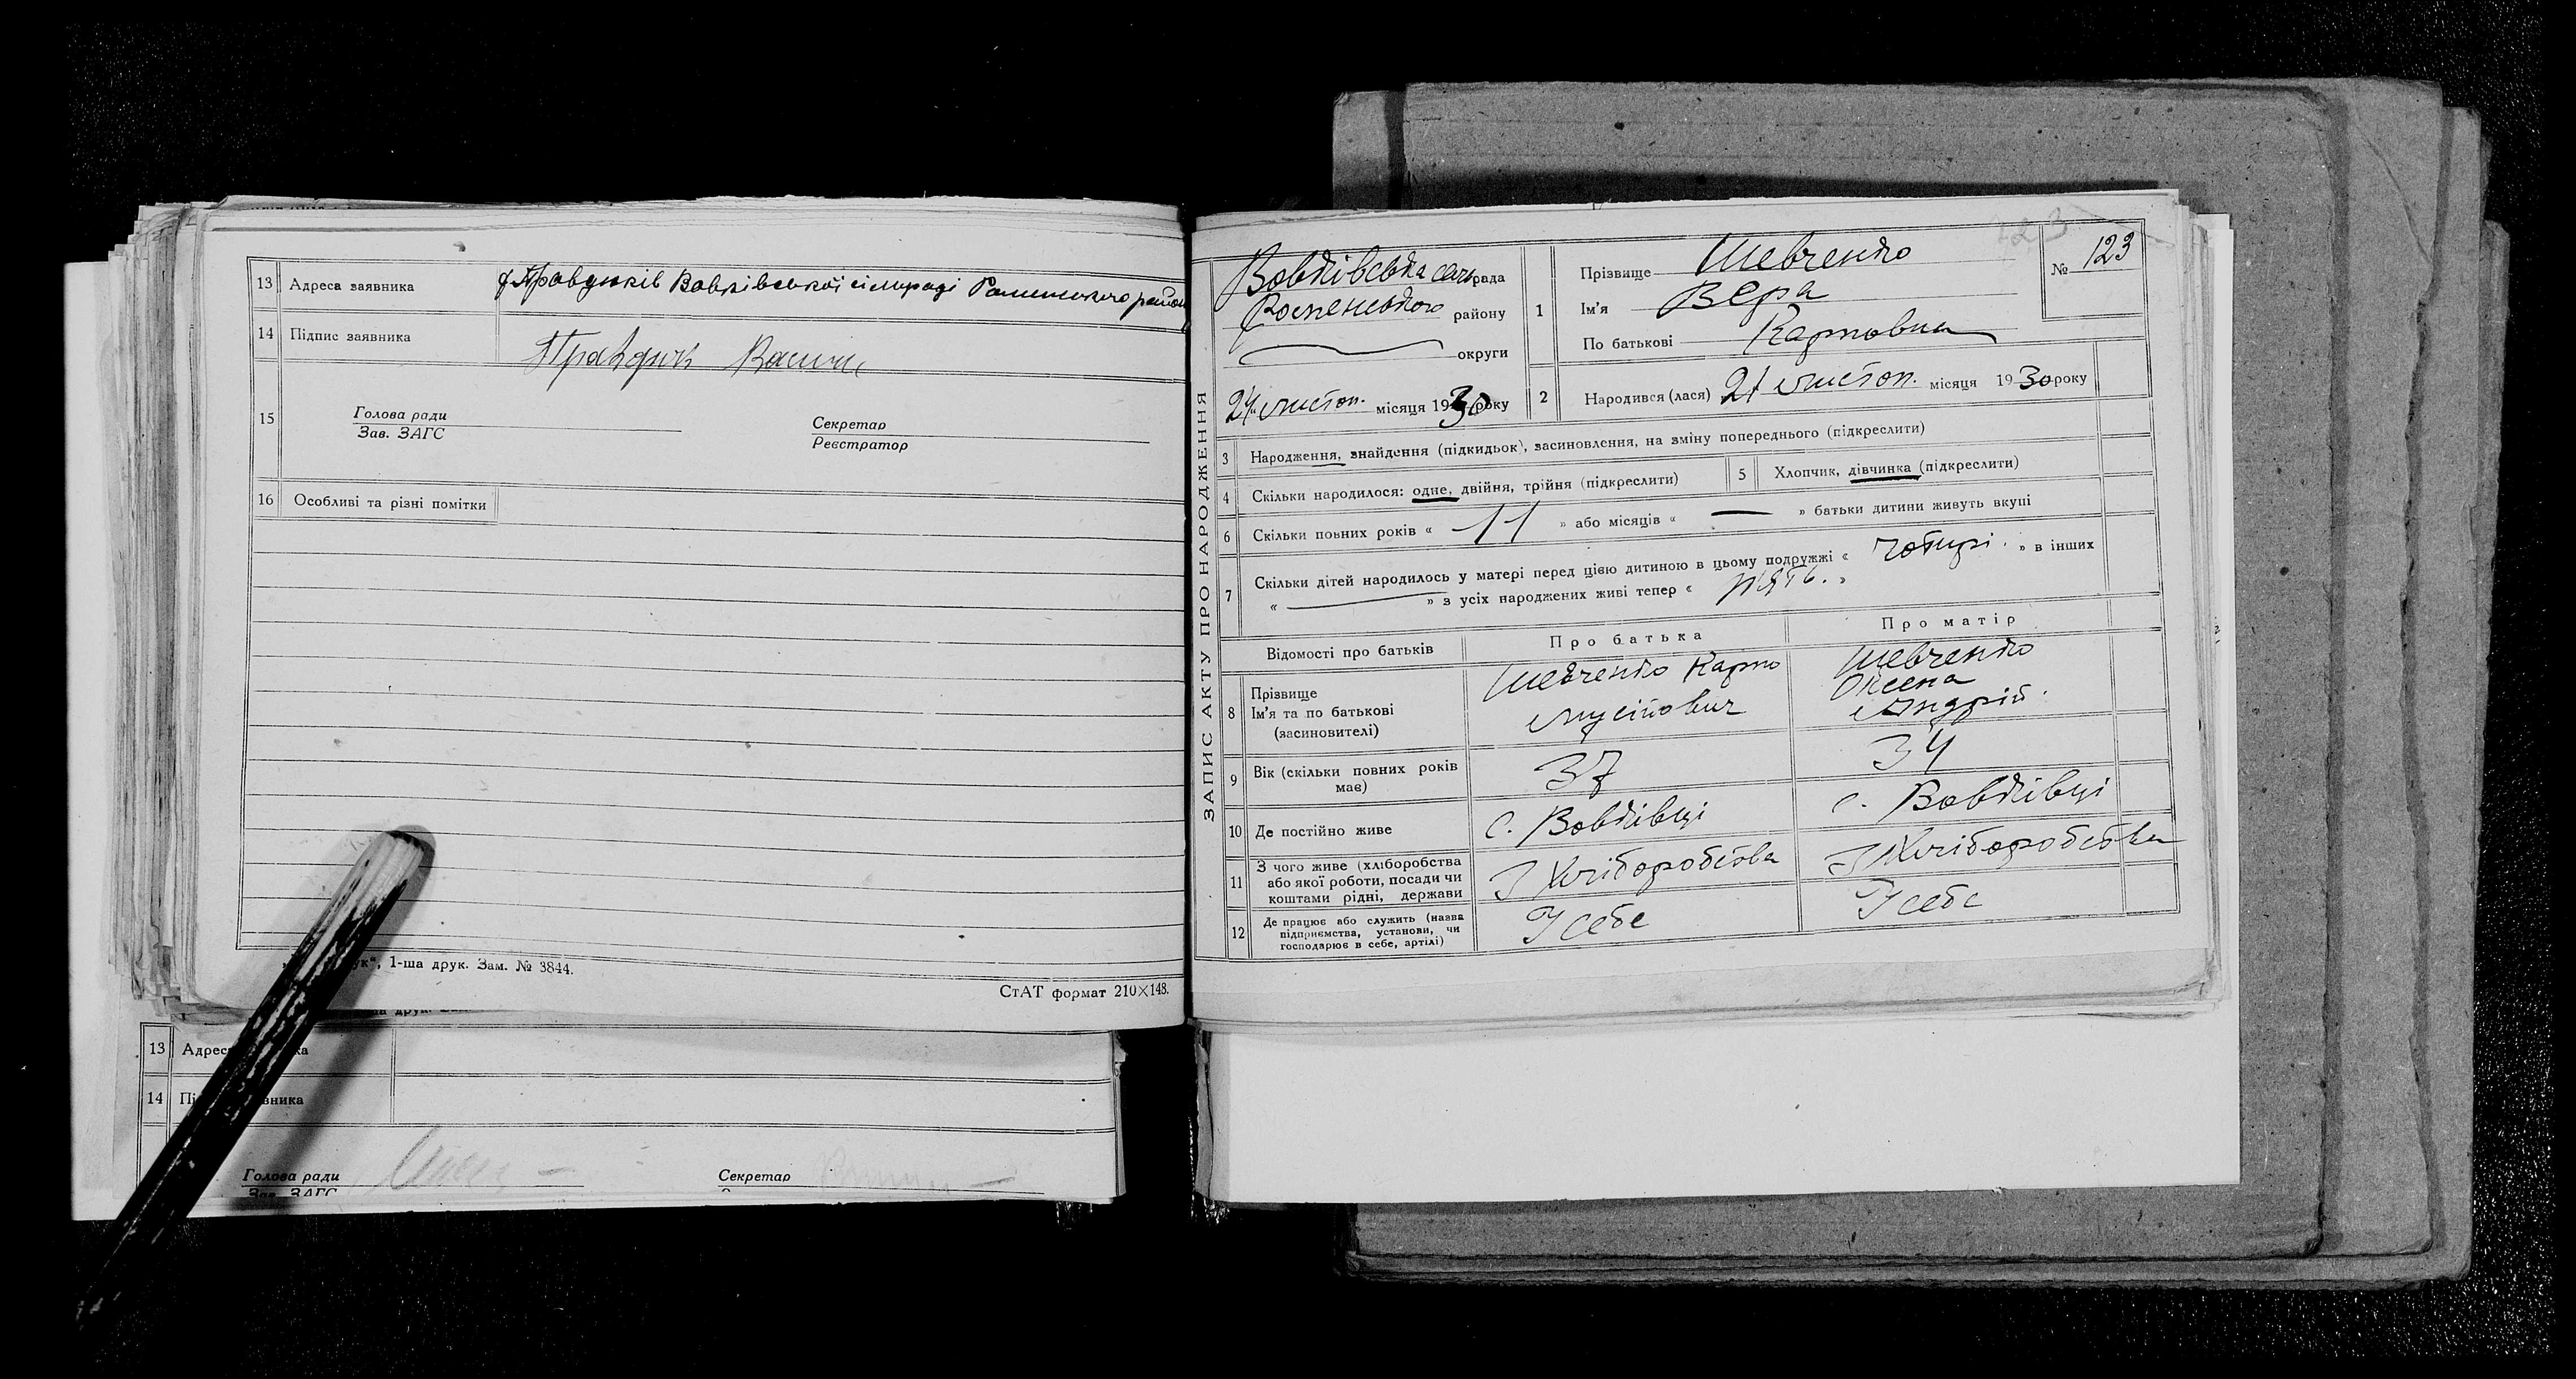 13 Адреса заявника х. Правдюків Вовківської сільради Роменського району
14 Підпис заявника Правдюк
15 Голова ради
Зав. ЗАГС
Секретар
Реєстратор
16 Особливі та різні помітки
ук“, 1-ша друк. Зам. № 3844.
СтАТ формат 210×148.
13 Адрес ка
14 Пі вника
Голова ради
Зав. ЗАГС
Секретар
ЗАПИС АКТУ ПРО НАРОДЖЕННЯ
Вовківська сільрада
Роменського району
округи
24 листоп. місяця 1930 року
1 Прізвище Шевченко
Ім'я Вера
По батькові Карповна
№ 123
2 Народився (лася) 21 листоп. місяця 1930 року
3 Народження, знайдення (підкидьок), засиновлення, на зміну попереднього (підкреслити)
4 Скільки народилося: одне, двійня, трійня (підкреслити)
5 Хлопчик, дівчинка (підкреслити)
6 Скільки повних років « 11 » або місяців « — » батьки дитини живуть вкупі
7 Скільки дітей народилось у матері перед цією дитиною в цьому подружжі « чотирі » в інших
« — » з усіх народжених живі тепер « пять. »
Відомості про батьків Про батька Про матір
8 Прізвище
Ім'я та по батькові
(засиновителі)
Шевченко Карпо
Мусійович
Шевченко
Оксена
Андрій.
9 Вік (скільки повних років
має)
37
34
10 Де постійно живе с. Вовківці с. Вовківці
11 З чого живе (хліборобства
або якої роботи, посади чи
коштами рідні, держави
З Хліборобства
З Хліборобства
12 Де працює або служить (назва
підприємства, установи, чи
господарює в себе, артілі)
У себе
У себе